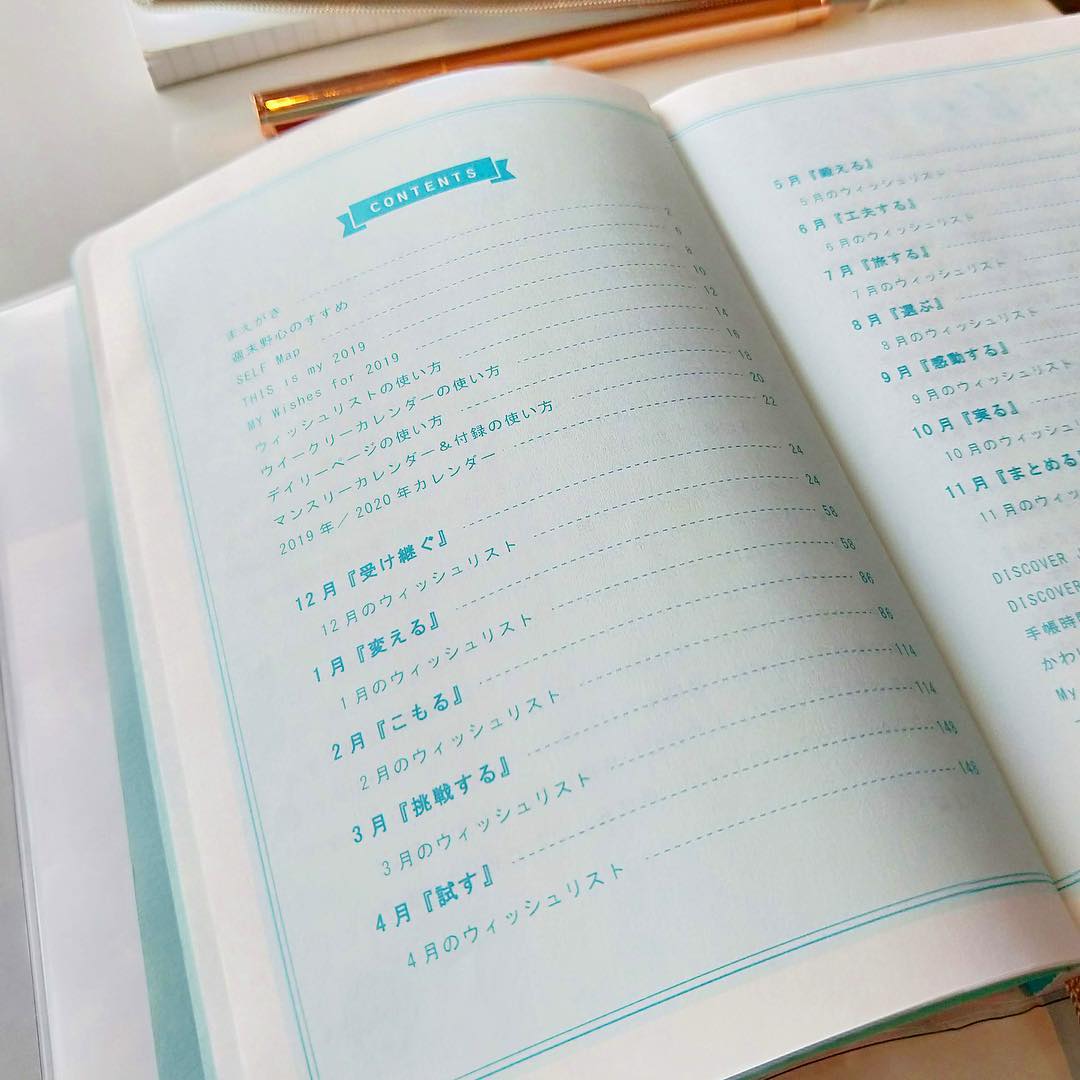 CONTENTS
まえがき 2
週末野心のすすめ 6
SELF Map 8
THIS is my 2019 10
MY Wishes for 2019 12
ウィッシュリストの使い方 14
ウイークリーカレンダーの使い方 16
デイリーページの使い方 18
マンスリーカレンダー＆付録の使い方 20
2019年／2020年カレンダー 22
12月『受け継ぐ』 24
12月のウィッシュリスト 24
1月『変える』 58
1月のウィッシュリスト 58
2月『こもる』 86
2月のウィッシュリスト 86
3月『挑戦する』 114
3月のウィッシュリスト 114
4月『試す』 148
4月のウィッシュリスト 148
5月『鍛える』
5月のウィッシュリスト
6月『工夫する』
6月のウィッシュリスト
7月『旅する』
7月のウィッシュリスト
8月『選ぶ』
8月のウィッシュリスト
9月『感動する』
9月のウィッシュリスト
10月『実る』
10月のウィッシュリ
11月『まとめる』
11月のウィッシ
DISCOVER
DISCOVER
手帳時
かわ
My